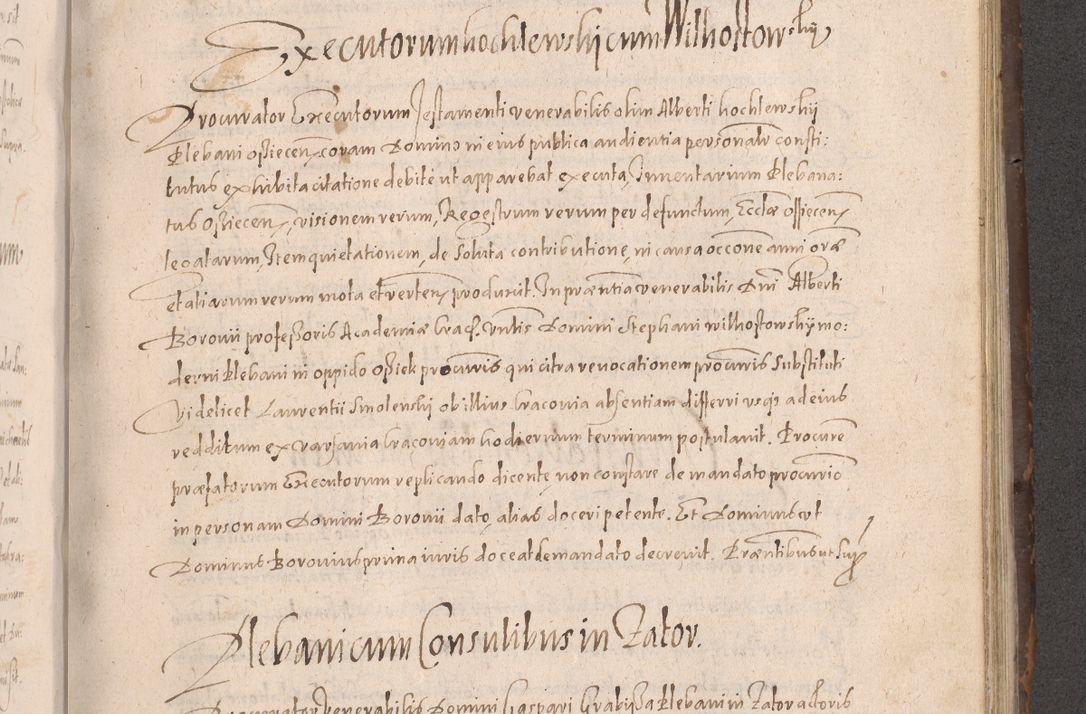 Executorum hochlewskij cum Wilhostowskij
Procurator Executorum Testamenti venerabilis olim Alberti hochlewskij
Plebani Osiecen, coram Domino in eius publica audientia personaliter consti:
tutus exhibita citatione debite ut apparebat executa, Inventarium Plebana:
tus Osiecen, visionem rerum, Regestrum rerum per defunctum, Ecclae Ossiecen
legatarum, Item quietationem, de soluta contributione, in causa occone anni orae
et aliarum rerum mota et verten produxit. In praentia venerabilis Dni Alberti
Borovii professoris Academiae Crac. Vntis Domini Stephani wilhostowskij mo:
derni Plebani in oppido Osiek procuris qui citra revocationem procuris Substituti
Videlicet Laurentii Smolenskj ob illius Cracovia absentiam differri usque ad eius
redditum ex varsavia Cracoviam hodiernum terminum postulavit. Procure
praefatorum Executorum replicando dicente, non constare de mandato procurio
in personam Domini Borovii dato, alias doceri petente. Et Dominus ut
Dominus Borovius prima iuris doceat de mandato decrevit. Praentibus ut supra
Plebani cum Consulibus in Zator.
Procurator Venerabilis Domini Caspari Grabissa Plebani in Zator actoris